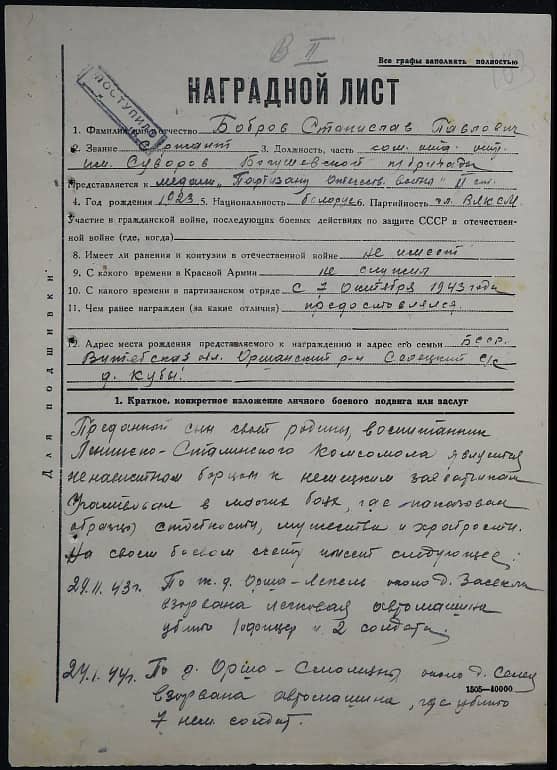 В II
Все графы заполнять полностью
НАГРАДНОЙ ЛИСТ
ПОСТУПИЛО
1. Фамилия, имя, отчество Бобров Станислав Павлович
2. Звание сержант 3. Должность, часть ком. отд. отр.
им. Суворов Богушевской п/бригады
Представляется к медали „Партизану Отечеств. война" II ст.
4. Год рождения 1923 5. Национальность белорус 6. Партийность чл. ВЛКСМ
Участие в гражданской войне, последующих боевых действиях по защите СССР и отечествен-
ной войне (где, когда)
8. Имеет ли ранения и контузии в отечественной войне не имеет
9. С какого времени в Красной Армии не служил
10. С какого времени в партизанском отряде с 7 октября 1943 года
11. Чем ранее награжден (за какие отличия) предоставлялся
12. Адрес места рождения представляемого к награждению и адрес его семьи БССР.
Витебская обл. Оршанский р-н с/с
д. Кубы.
Для подшивки
1. Краткое, конкретное изложение личного боевого подвига или заслуг
Преданный сын своей родины, воспитанник
Ленинско-Сталинского Комсомола является
ненавистном борцом к немецким захватчикам
Участвовал в многих боях, где показовал
образцы стойкости, мужества и храбрости.
На своем боевом счету имеет следующее:
29.11.43г. По ж.д. Орша-Лепель около д.
взорвана легковая автомашина
убито 1 офицер и 2 солдата.
24.1.44г. По д. Орша - около д.
взорвана автомашина, где убито
7 нем. солдат.
1505—40000